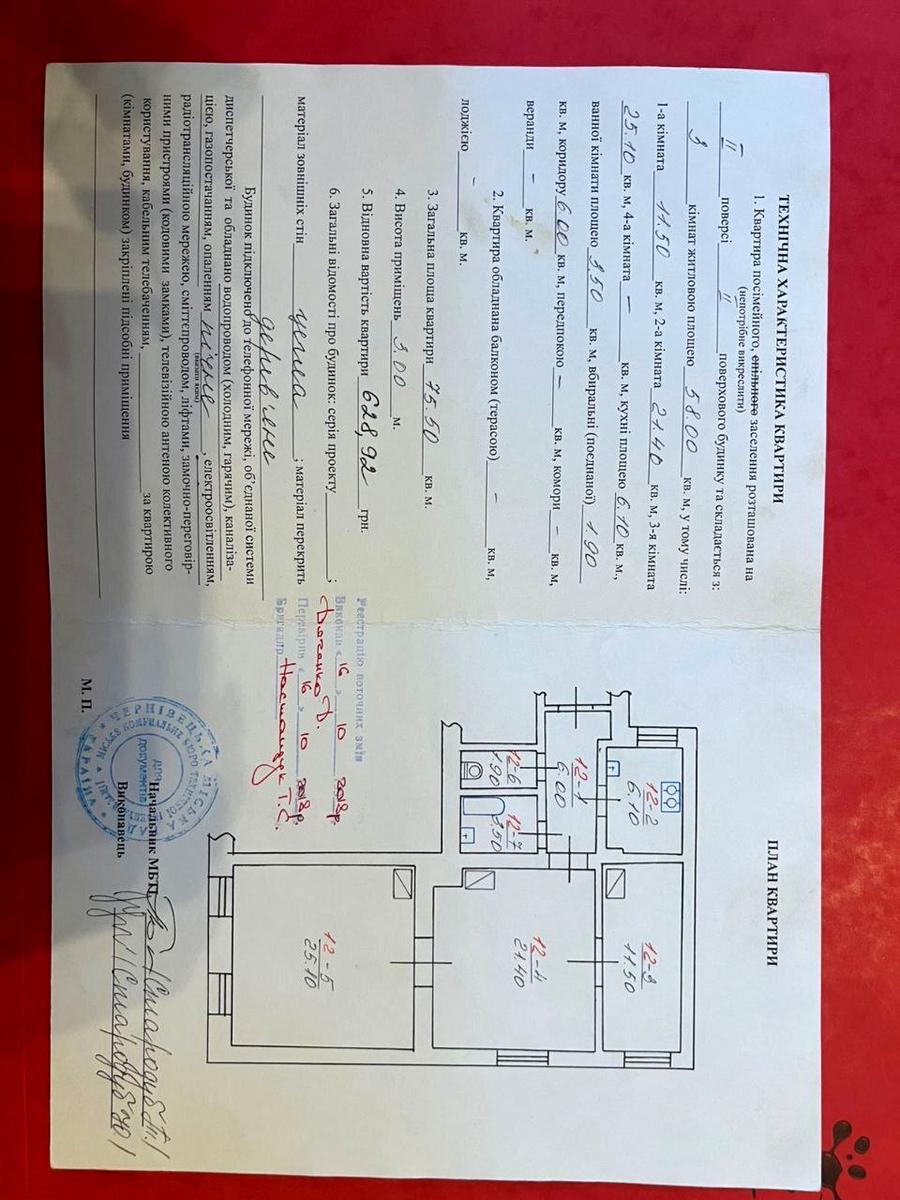 ТЕХНІЧНА ХАРАКТЕРИСТИКА КВАРТИРИ
1. Квартира посімейного, спільного заселення розташована на
(непотрібне викреслити)
II поверсі II поверхового будинку та складається з:
3 кімнат житловою площею 58.00 кв. м, у тому числі:
1-а кімната 11.50 кв. м, 2-а кімната 21.40 кв. м, 3-я кімната
25.10 кв. м, 4-а кімната – кв. м, кухні площею 6.10 кв. м.,
ванної кімнати площею 3.50 кв. м, вбиральні (поєднаної) 1.90
кв. м, коридору 6.00 кв. м, передпокою – кв. м, комори – кв. м,
веранди – кв. м.
2. Квартира обладнана балконом (терасою) – кв. м,
лоджією – кв. м.
3. Загальна площа квартири 75.50 кв. м.
4. Висота приміщень 3.00 м.
5. Відновна вартість квартири 628,92 грн.
6. Загальні відомості про будинок: серія проекту ;
матеріал зовнішніх стін цегла ; матеріал перекрить
дерив'яні
Будинок підключено до телефонної мережі, об'єднаної системи
диспетчерської та обладнано водопроводом (холодним, гарячим), каналіза-
цією, газопостачанням, опаленням пічне , електроосвітленням,
(вказати яким)
радіотрансляційною мережею, сміттєпроводом, ліфтами, замочно-переговір-
ними пристроями (кодовими замками), телевізійною антеною колективного
користування, кабельним телебаченням, за квартирою
(кімнатами, будинком) закріплені підсобні приміщення
ПЛАН КВАРТИРИ
12-2
6.10
12-3
11.50
12-1
6.00
12-6
1.90
12-7
3.50
12-4
21.40
12-5
25.10
Реєстрацію поточних змін
Виконав « 16 » 10 2018р.
Перевірив « 16 » 10 2018р.
Бригадир
Начальник МБТІ
Виконавець
М. П.
УКРАЇНА
ЧЕРНІВЕЦЬКА МІСЬКА РАДА
для
документів